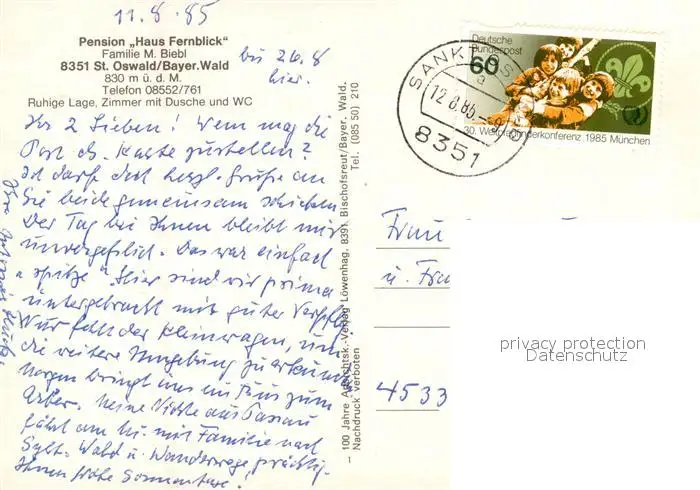 11.8.85
Pension „Haus Fernblick"
Familie M. Biebl
8351 St. Oswald/Bayer. Wald
830 m ü. d. M.
Telefon 08552/761
Ruhige Lage, Zimmer mit Dusche und WC
bis 26.8
hier.
Ihr 2 Lieben! Wem mag die
Post ds. Karte zustellen?
Ich darf doch herzl. Grüße an
Sie beide gemeinsam schicken
Der Tag bei Ihnen bleibt mir
unvergeßlich. Das war einfach
"spitze" Hier sind wir prima
untergebracht mit guter Verpfl.
Nur fehlt der Kleinwagen, um
die weitere Umgebung zu erkunden
Morgen bringt uns ein Bus zum
Arber. Meine Nichte aus Passau
fährt am Mi. mit Familie nach
Sylt. Wald u. Wanderwege prächtig.
Ihnen frohe Sommertage!
Ihre
100 Jahre Ansichtsk.-Verlag Löwenhag, 8391 Bischofsreut/Bayer. Wald.
Nachdruck verboten Tel. (085 50) 210
1
Deutsche
Bundespost
60
30. Weltpfadfinderkonferenz 1985 München
SANKT OS
a
12.8.85
8351
Frau
u. Frau
4533
privacy protection
Datenschutz